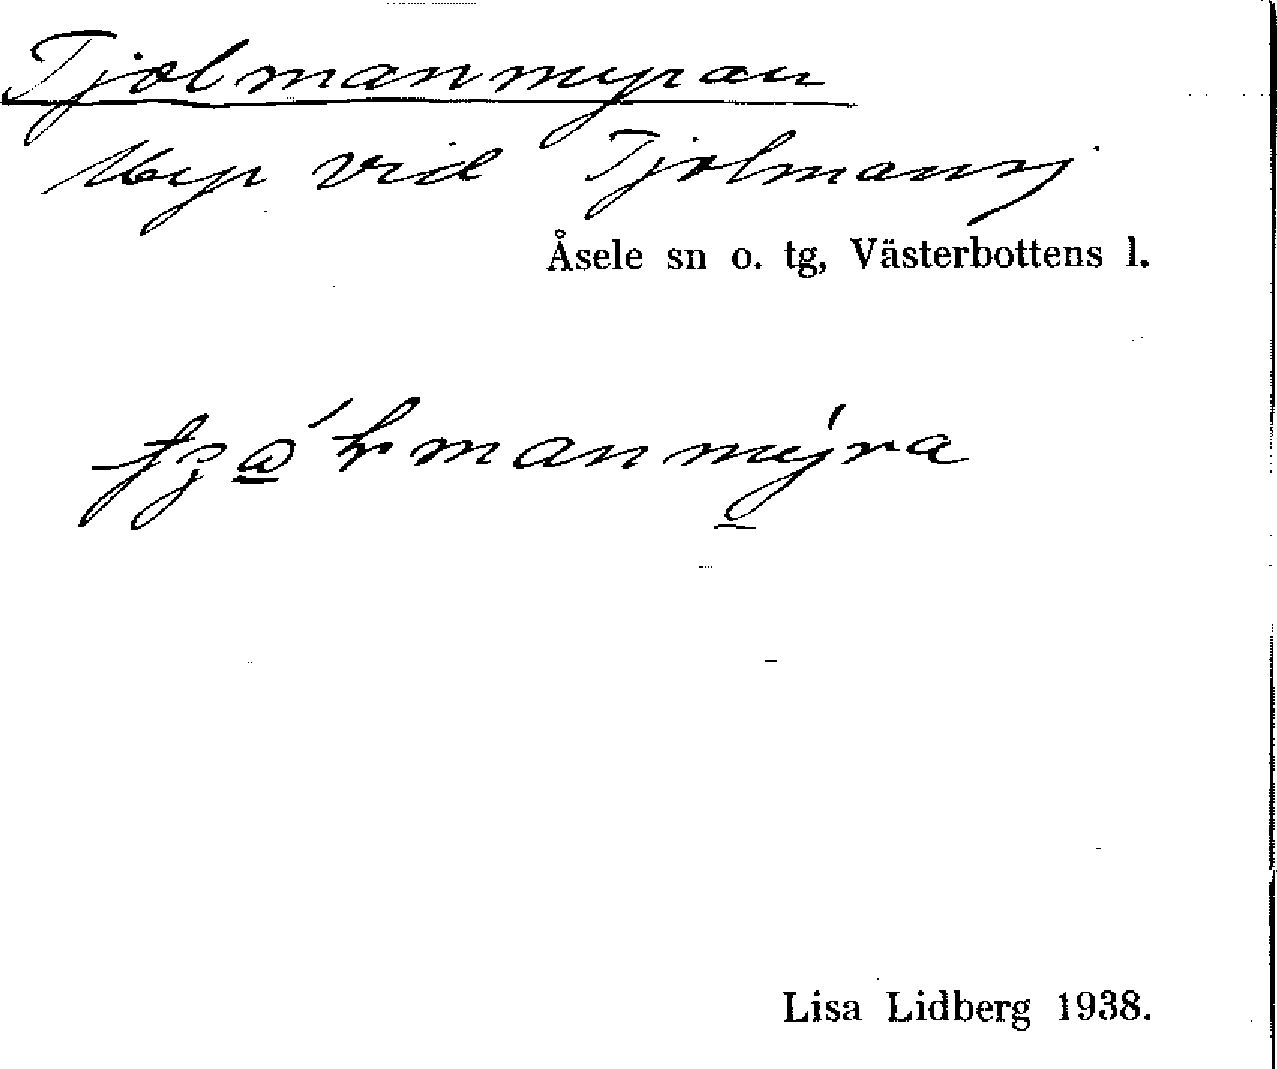 Tjolmanmyran
Myr vid Tjolmansj
Åsele sn o. tg, Västerbottens l.
Lisa Lidberg 1938.